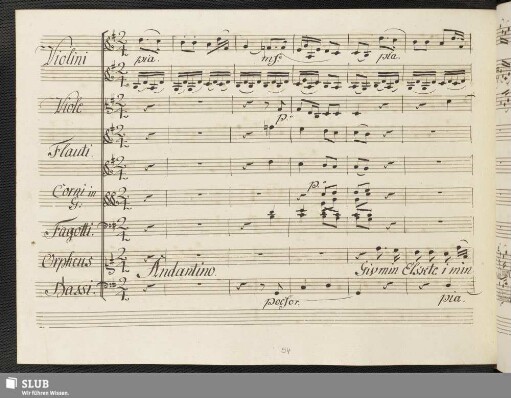 Violini
pia.
mf.
pia.
Viole
p.
Flauti
Corni in
G.
p.
Fagotti.
Orpheus
Andantino.
Giv min Elskte i min
Bassi.
poc for.
pia.
SLUB
Wir führen Wissen.